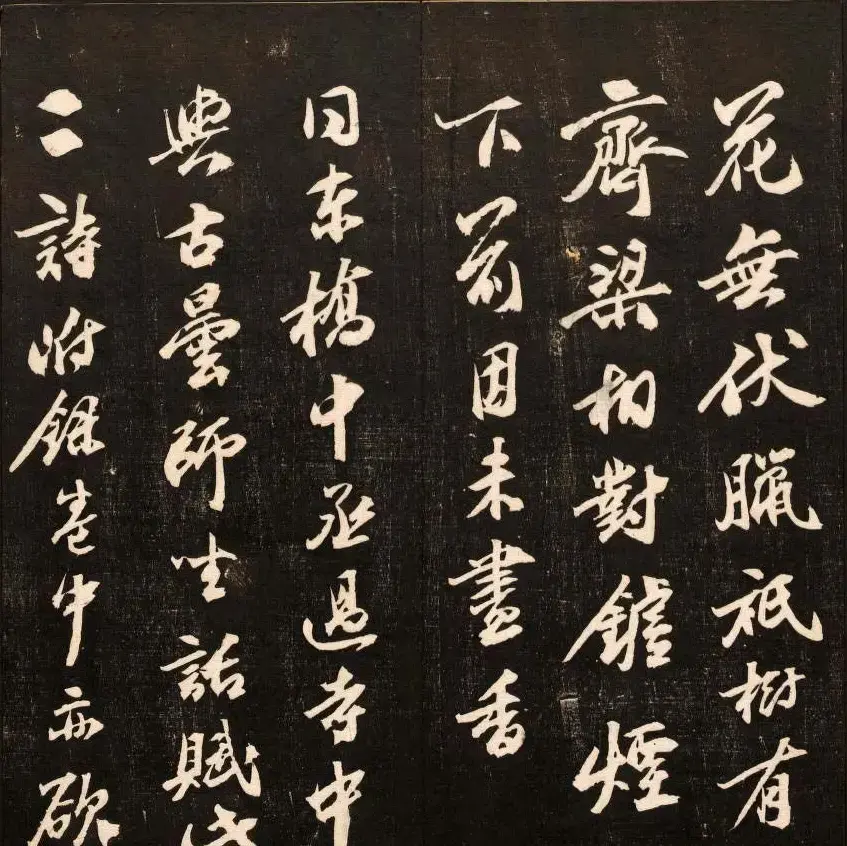 花無伏臘祇樹有
齊梁相對鑪煙
下前因未盡香
同東橋中丞過寺中
與古曇師坐話賦
二詩附錄卷中亦欲